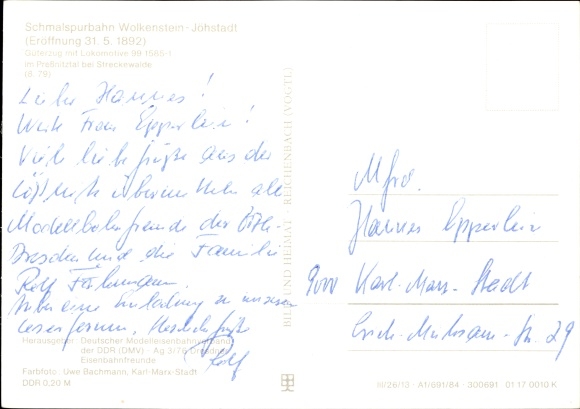 Schmalspurbahn Wolkenstein-Jöhstadt
(Eröffnung 31. 5. 1892)
Güterzug mit Lokomotive 99 1585-1
im Preßnitztal bei Streckewalde
(8. 79)
Liebe Hannes!
Werte Frau Epperlein!
Viele liebe Grüße aus der
übermitteln alle
Modellbahnfreunde der
Dresden und die Familie
Rolf
eine Einladung zu unseren
Herzliche Grüße
Rolf
Herausgeber: Deutscher Modelleisenbahnverband
der DDR (DMV) · Ag 3/78 Dresdner
Eisenbahnfreunde
Farbfoto: Uwe Bachmann, Karl-Marx-Stadt
DDR 0,20 M
BILD UND HEIMAT · REICHENBACH (VOGTL)
Mfrd.
Hannes Epperlein
9000 Karl-Marx-Stadt
Erich-Mühsam-Str. 29
III/26/13 · A1/691/84 · 300691 01 17 0010 K